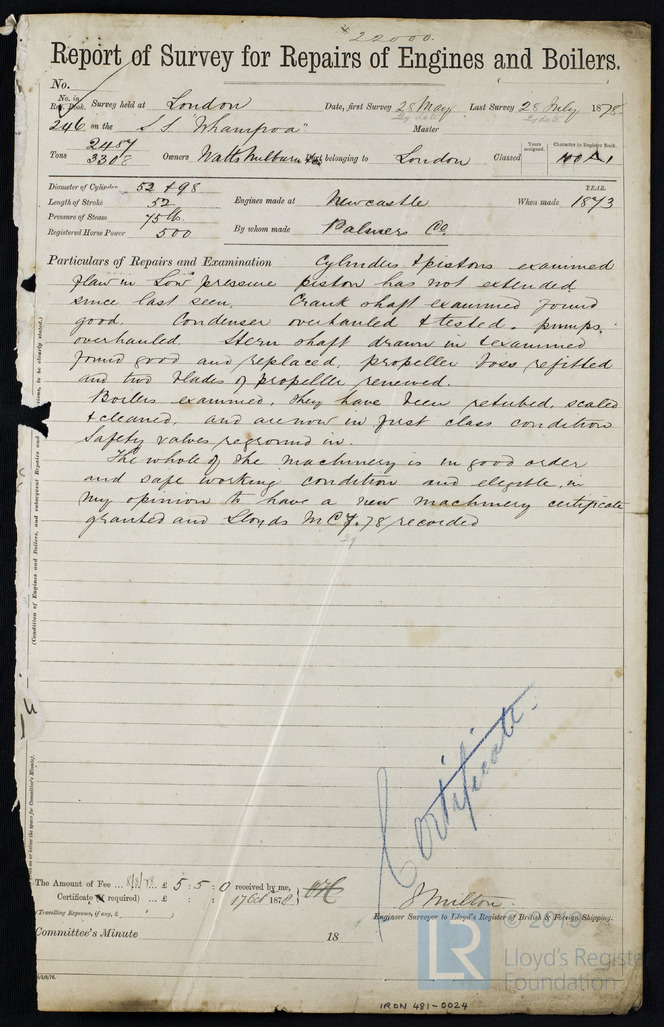 22000
Report of Survey for Repairs of Engines and Boilers.
No.
No. in Reg. Book. Survey held at London Date, first Survey 28 May Last Survey 28 July 1878
246 on the S S "Whampoa" Master
Tons 2487 3308 Owners Watts Milburn & Co Port belonging to London Classed Years assigned. Character in Register Book. 100 A1
Diameter of Cylinder 52 & 98
Length of Stroke 52
Pressure of Steam 75 lb.
Registered Horse Power 500
Engines made at Newcastle When made YEAR. 1873
By whom made Palmers Co
Particulars of Repairs and Examination Cylinders & pistons examined
flaw in Low pressure piston has not extended
since last seen. Crank shaft examined found
good. Condenser overhauled & tested. pumps.
overhauled Stern shaft drawn in & examined
found good and replaced, propeller boss refitted
and two blades of propeller renewed.
Boilers examined, they have been retubed, scaled
& cleaned, and are now in first class condition
Safety valves reground in.
The whole of the machinery is in good order
and safe working condition and eligible, in
my opinion to have a new machinery certificate
granted and Lloyds M C 7.78 recorded
(Condition of Engines and Boilers, and subsequent Repairs and
to be clearly stated.)
Certificate.
The Amount of Fee ... 8/8/78. £ 5 : 5 : 0 received by me,
Certificate (if required) ... £ : : 17 Oct 1878
(Travelling Expenses, if any, £ )
J Milton.
Engineer Surveyor to Lloyd's Register of British & Foreign Shipping.
Committee's Minute 18
© 2019
LR
Lloyd's Register
Foundation
IRON 481-0024